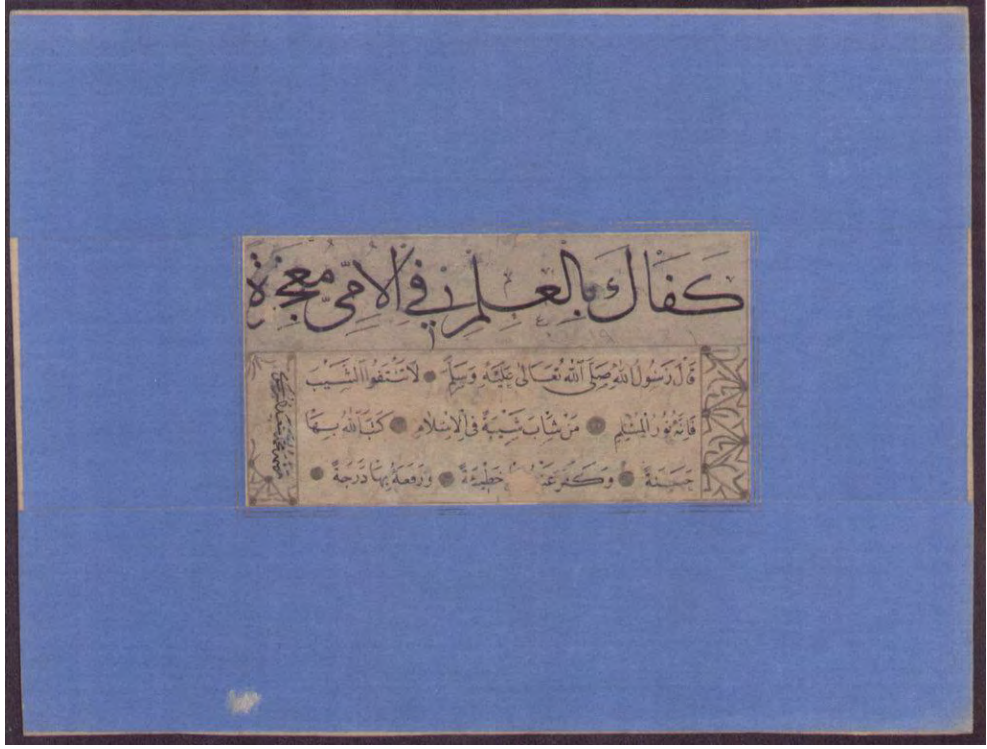 كَفَاكَ بِالْعِلْمِ فِي الْأُمِّيِّ مُعْجِزَةً
قَالَ رَسُولُ اللهِ صَلَّى اللهُ تَعَالَى عَلَيْهِ وَسَلَّمَ لَا تَنْتَفُوا الشَّيْبَ
فَإِنَّهُ نُورُ الْمُسْلِمِ مَنْ شَابَ شَيْبَةً فِي الْإِسْلَامِ كَتَبَ اللهُ بِهَا
حَسَنَةً وَكَفَّرَ عَنْهُ خَطِيئَةً وَرَفَعَهُ بِهَا دَرَجَةً